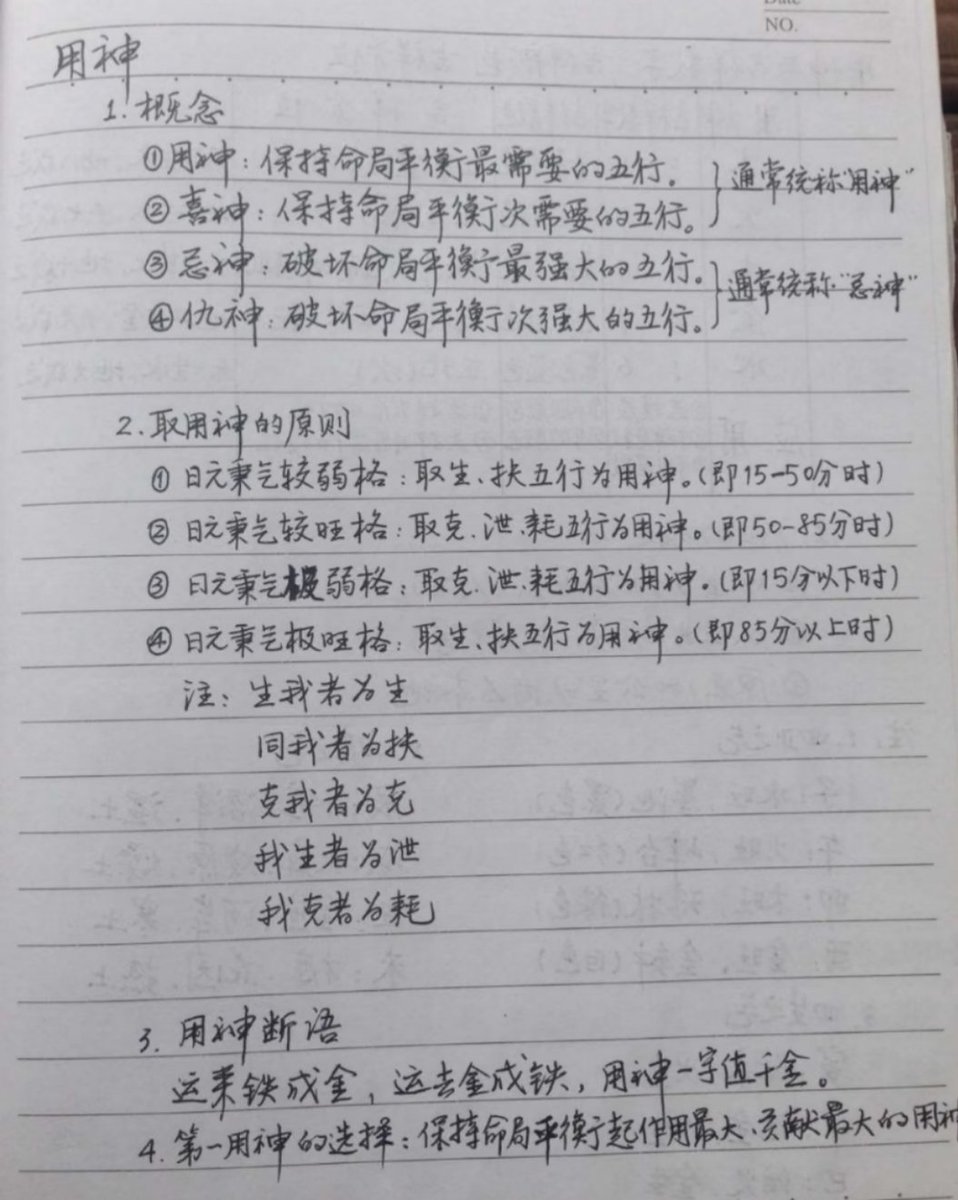 Date
NO.
用神
1. 概念
①用神：保持命局平衡最需要的五行。
②喜神：保持命局平衡次需要的五行。
} 通常统称"用神"
③忌神：破坏命局平衡最强大的五行。
④仇神：破坏命局平衡次强大的五行。
} 通常统称"忌神"
2. 取用神的原则
① 日元秉气较弱格：取生、扶五行为用神。(即15-50分时)
② 日元秉气较旺格：取克、泄、耗五行为用神。(即50-85分时)
③ 日元秉气极弱格：取克、泄、耗五行为用神。(即15分以下时)
④ 日元秉气极旺格：取生、扶五行为用神。(即85分以上时)
注：生我者为生
同我者为扶
克我者为克
我生者为泄
我克者为耗
3. 用神断语
运来铁成金，运去金成铁，用神一字值千金。
4. 第一用神的选择：保持命局平衡起作用最大、贡献最大的用神